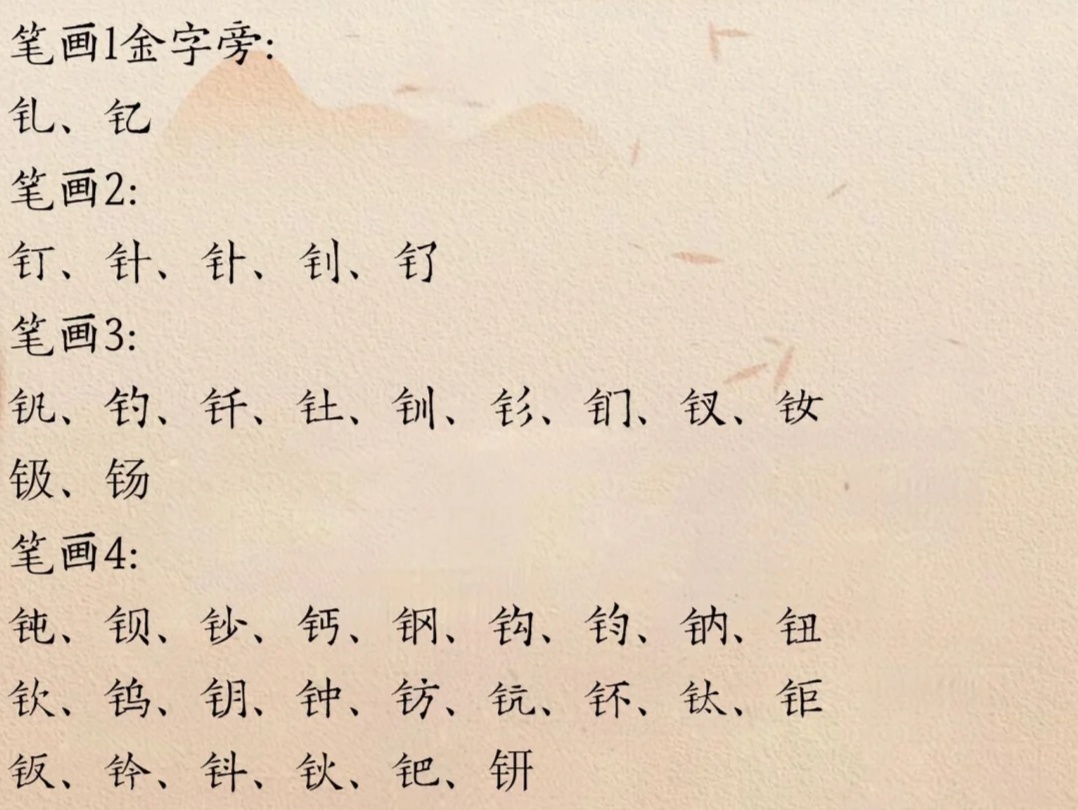 笔画1金字旁:
钆、钇
笔画2:
钉、针、钋、钊、钌
笔画3:
钒、钓、钎、钍、钏、钐、钔、钗、钕
钑、钖
笔画4:
钝、钡、钞、钙、钢、钩、钧、钠、钮
钦、钨、钥、钟、钫、钪、钚、钛、钜
钣、钤、钭、钬、钯、钘